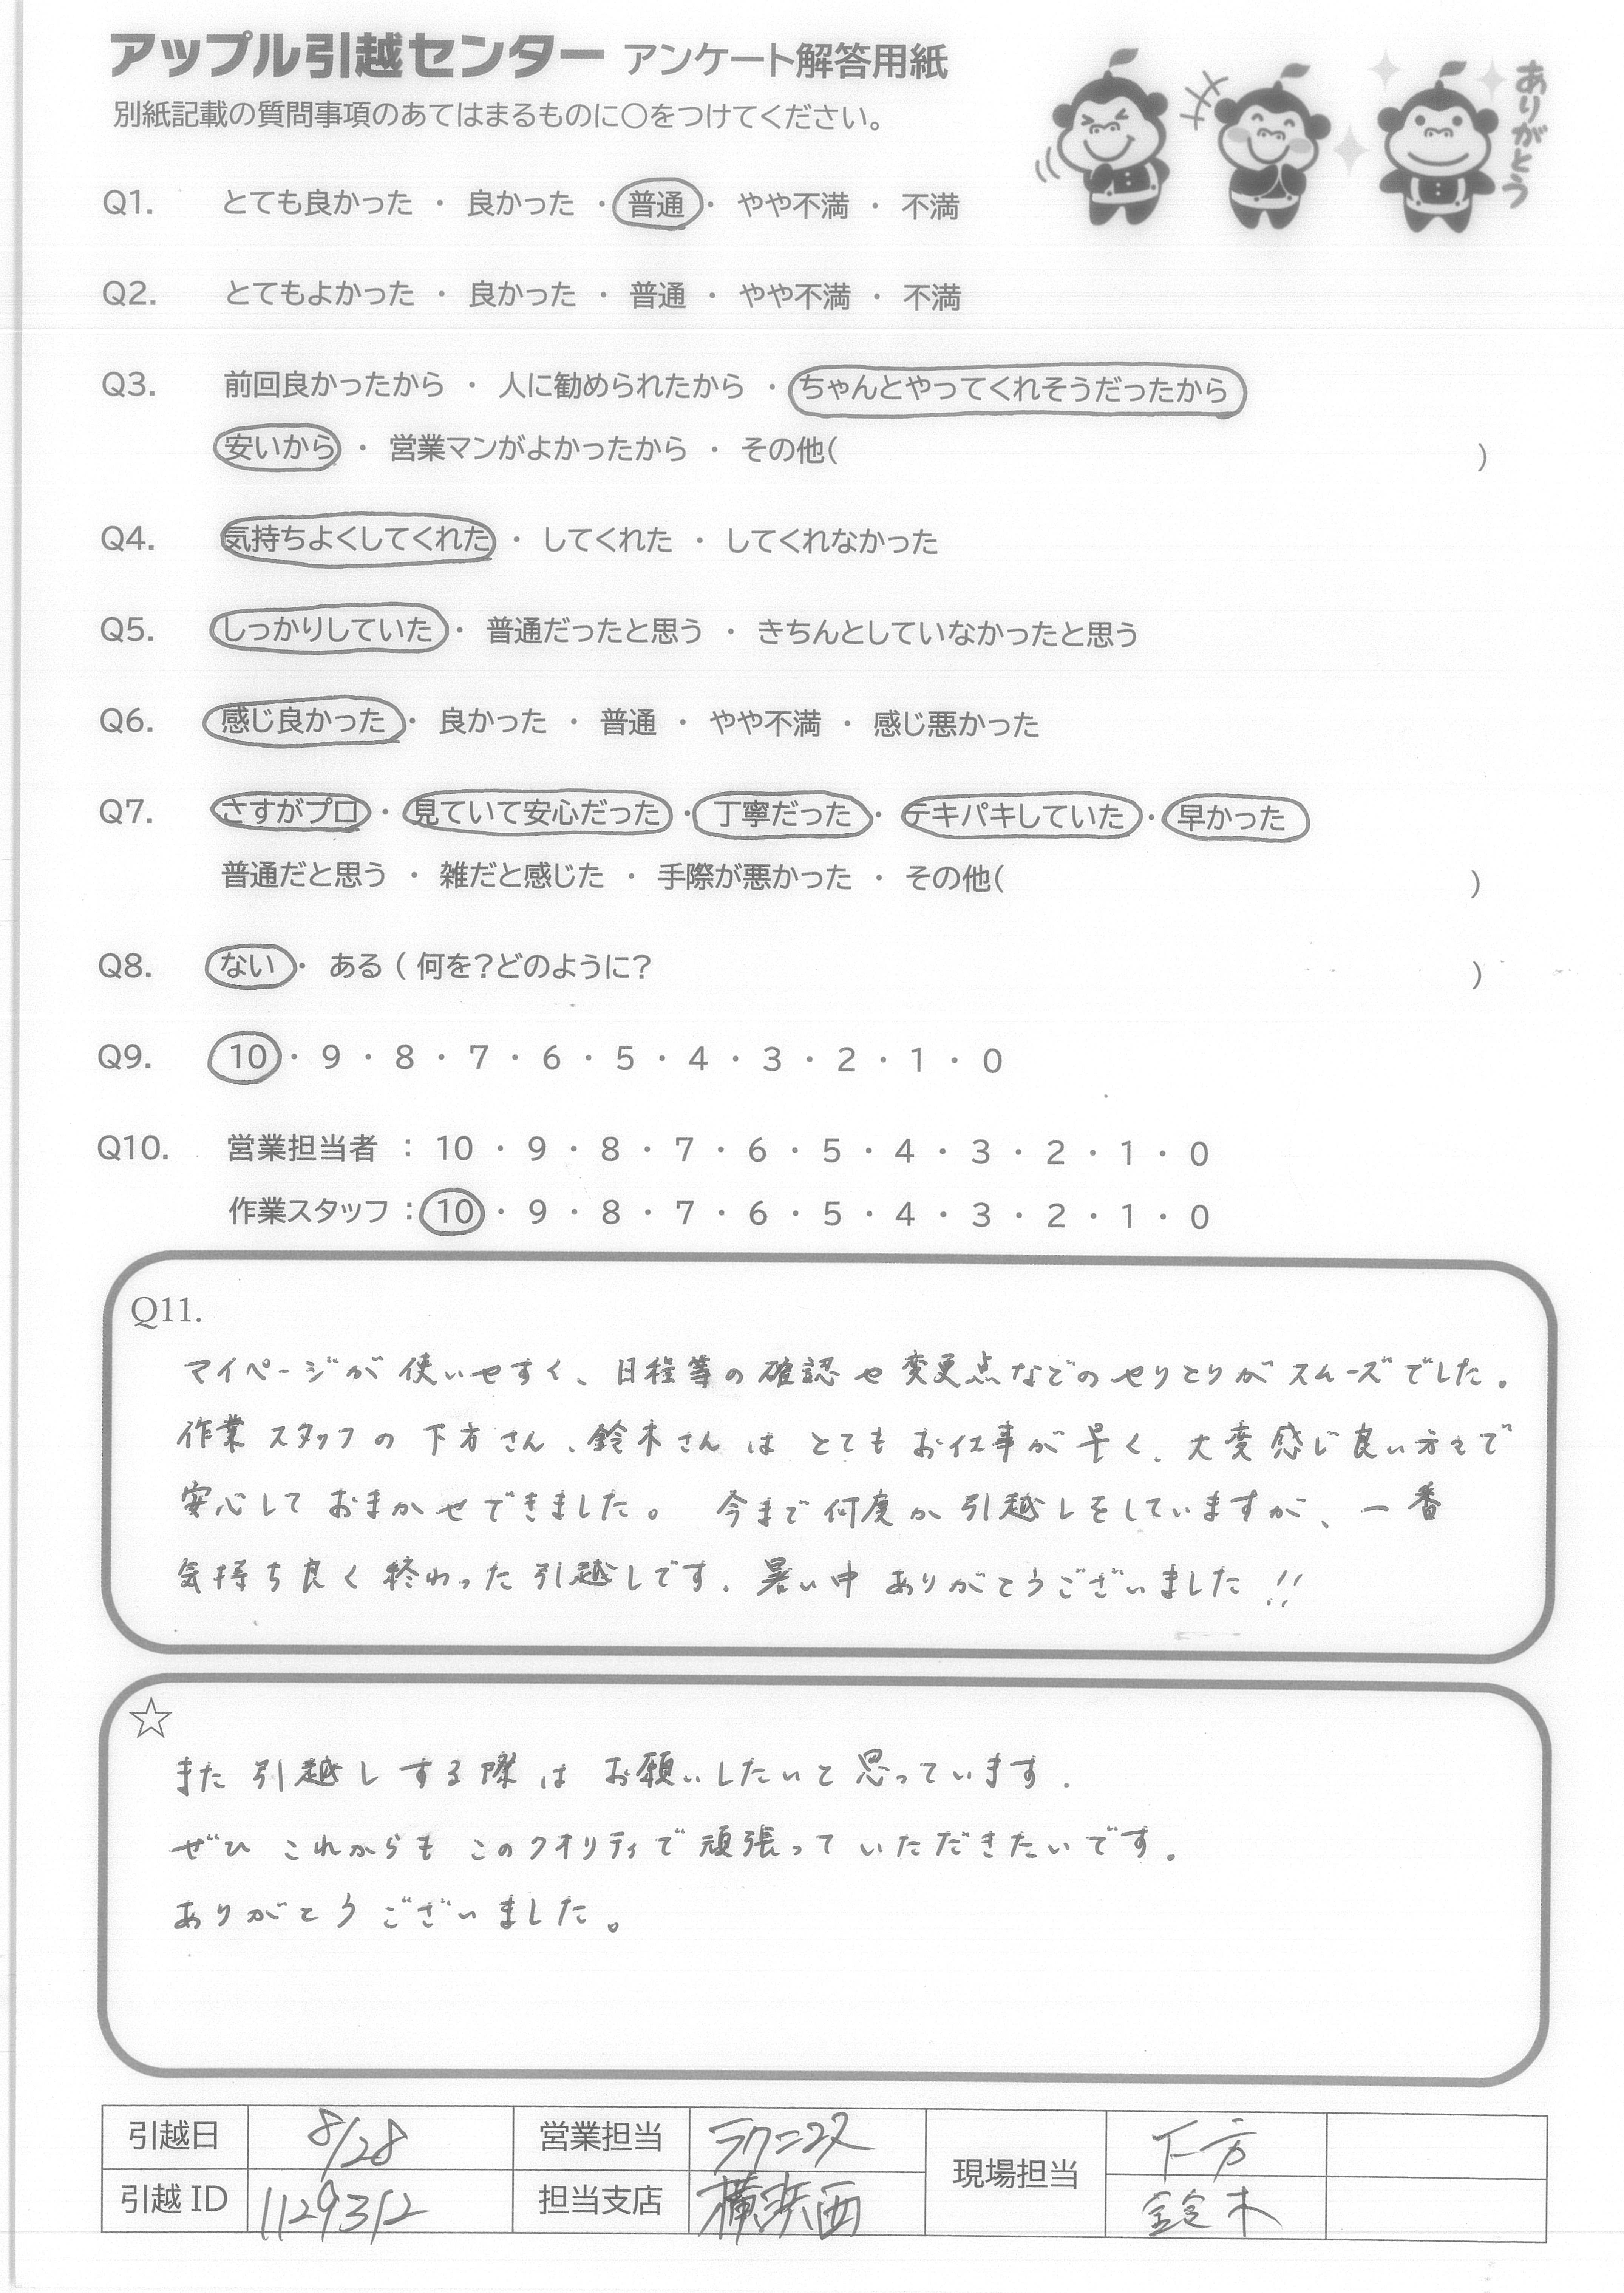 アップル引越センター アンケート解答用紙
別紙記載の質問事項のあてはまるものに○をつけてください。
ありがとう
Q1. とても良かった ・ 良かった ・ 普通 ・ やや不満 ・ 不満
Q2. とてもよかった ・ 良かった ・ 普通 ・ やや不満 ・ 不満
Q3. 前回良かったから ・ 人に勧められたから ・ ちゃんとやってくれそうだったから
安いから ・ 営業マンがよかったから ・ その他( )
Q4. 気持ちよくしてくれた ・ してくれた ・ してくれなかった
Q5. しっかりしていた ・ 普通だったと思う ・ きちんとしていなかったと思う
Q6. 感じ良かった ・ 良かった ・ 普通 ・ やや不満 ・ 感じ悪かった
Q7. さすがプロ ・ 見ていて安心だった ・ 丁寧だった ・ テキパキしていた ・ 早かった
普通だと思う ・ 雑だと感じた ・ 手際が悪かった ・ その他( )
Q8. ない ・ ある ( 何を?どのように? )
Q9. 10 ・ 9 ・ 8 ・ 7 ・ 6 ・ 5 ・ 4 ・ 3 ・ 2 ・ 1 ・ 0
Q10. 営業担当者 : 10 ・ 9 ・ 8 ・ 7 ・ 6 ・ 5 ・ 4 ・ 3 ・ 2 ・ 1 ・ 0
作業スタッフ : 10 ・ 9 ・ 8 ・ 7 ・ 6 ・ 5 ・ 4 ・ 3 ・ 2 ・ 1 ・ 0
Q11.
マイページが使いやすく、日程等の確認や変更点などのやりとりがスムーズでした。
作業スタッフの下方さん、鈴木さんはとてもお仕事が早く、大変感じ良い方々で
安心しておまかせできました。 今まで何度か引越しをしていますが、一番
気持ち良く終わった引越しです。暑い中ありがとうございました!!
☆
また引越しする際はお願いしたいと思っています。
ぜひこれからもこのクオリティで頑張っていただきたいです。
ありがとうございました。
引越日 8/28 営業担当 ラクニコス 現場担当 下方
引越ID 1129312 担当支店 横浜西 鈴木